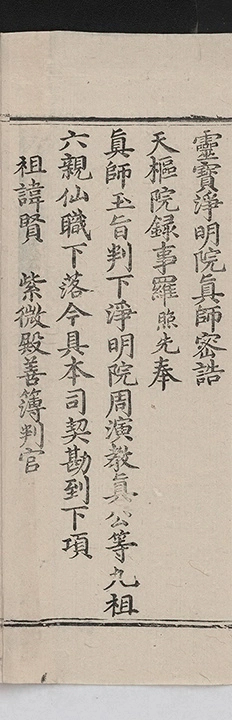 靈寶淨明院眞師宻誥
天樞院録事羅照先奉
眞師玉旨判下淨明院周演敎眞公等九祖
六親仙職下落今具本司契勘到下項
祖諱賢　紫微殿善簿判官